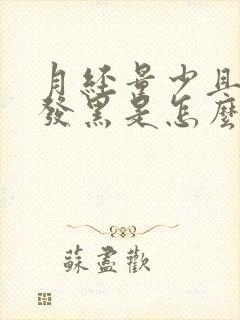 月經量少且
發黑是怎麼
蘇盡歡